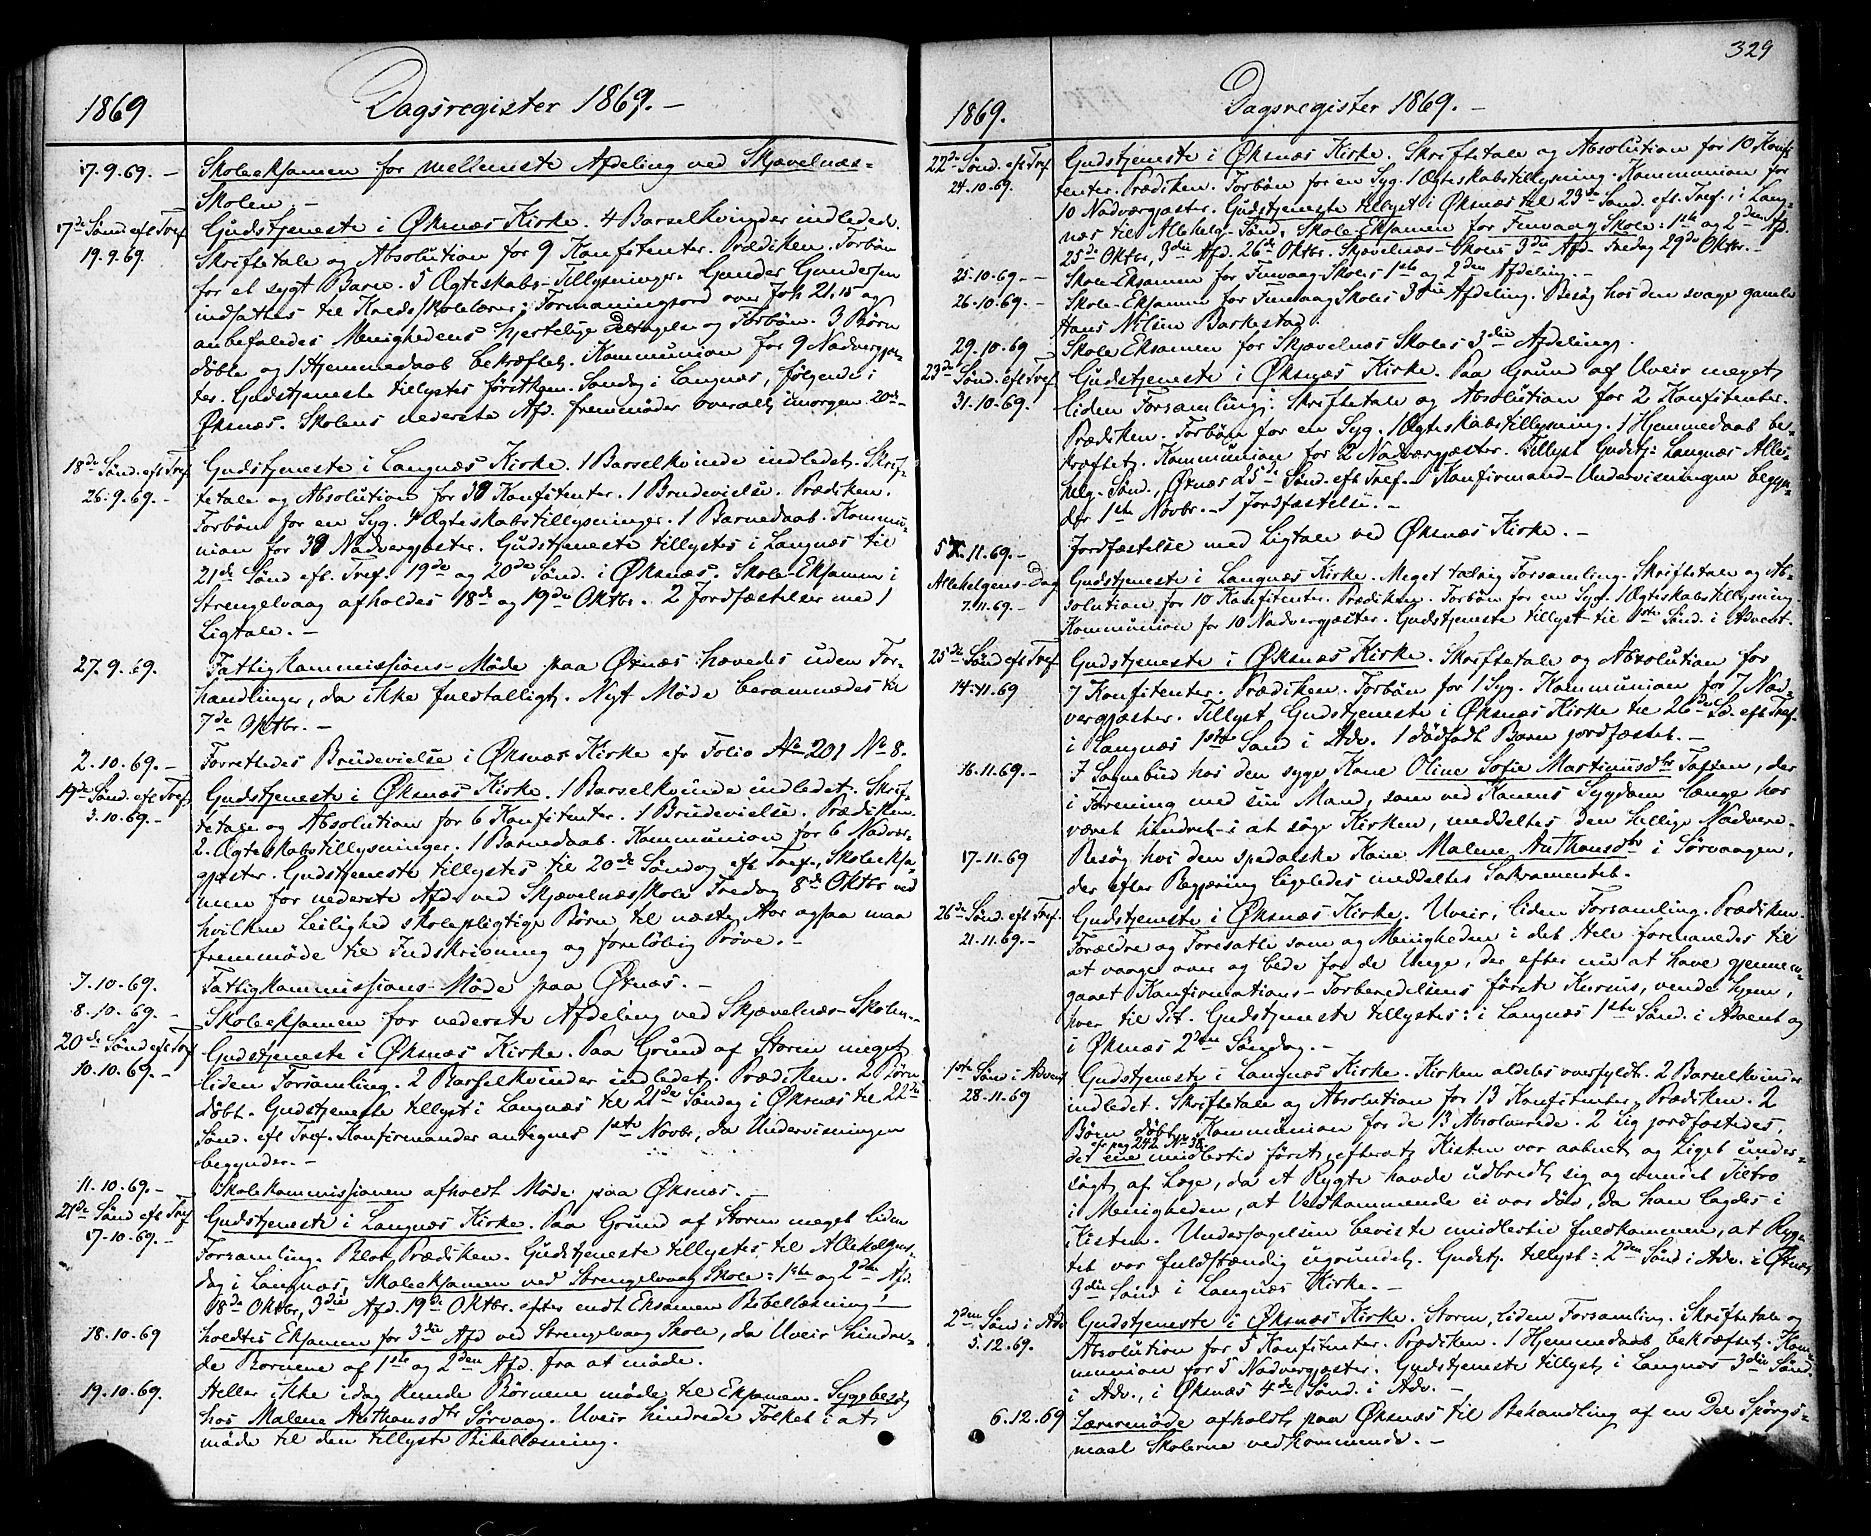 1869
Dagsregister 1869. –
17.9.69. –
Skoleeksamen for mellemste Afdeling ved Skjævelnæs-
Skolen. –
17de Sønd. eft Tref.
19.9.69.
Gudstjeneste i Øksnæs Kirke. 4 Barselkvinder indledet.
Skriftetale og Absolution for 9 Konfitenter. Prædiken. Forbøn
for et sygt Barn. 5 Ægteskabs-Tillysninger. Gunder Gundersen
indsattes til Kreds/Skolelærer; Formaningsord over Joh. 21,15 og
anbefaledes Menighedens hjertelige Deltagelse og Forbøn. 3 Børn
døbte og 1 Hjemmedaab bekræftet. Kommunion for 9 Nadvergjæs-
ter. Gudstjeneste tillystes førstkom. Søndg i Langnæs, følgende i
Øksnæs. Skolens nederste Afd. fremmøder overalt imorgen 20de –
18de Sønd. eft Tref.
26.9.69. –
Gudstjeneste i Langnæs Kirke. 1 Barselkvinde indledet. Skrif-
tetale og Absolution for 39 Konfitenter. 1 Brudevielse. Prædiken.
Forbøn for en Syg. 4 Ægteskabstillysninger. 1 Barnedaab. Kommu-
nion for 39 Nadvergjæster. Gudstjeneste tillystes i Langnæs til
21de Sønd eft. Tref. 19de og 20de Sønd. i Øksnæs. Skole-Eksamen i
Strengelvaag afholdes 18de og 19de Oktbr. 2 Jordfæstelser med 1
Ligtale. –
27.9.69.
Fattigkommissions-Møde paa Øxnæs hævedes uden For-
handlinger, da ikke fuldtalligt. Nyt Møde berammedes til
7de Oktbr. –
2.10.69. –
Forrettedes Brudevielse i Øksnæs Kirke efr Folio No 201 No 8.
19de Sønd. eft Tref.
3.10.69. –
Gudstjeneste i Øksnæs Kirke. 1 Barselkvinde indledet. Skrif-
tetale og Absolution for 6 Konfitenter. 1 Brudevielse. Prædiken.
2. Ægteskabstillysninger. 1 Barnedaab. Kommunion for 6 Nadver-
gjæster. Gudstjeneste tillystes til 20de Søndag eft Tref., Skoleeksa-
men for nederste Afd. ved Skjævelnæsskole Fredag 8de Oktbr ved
hvilken Leilighed skolepligtige Børn til næste Aar ogsaa maa
fremmøde til Indskrivning og foreløbig Prøve. –
7.10.69.
Fattigkommissions-Møde paa Øxnæs. –
8.10.69. –
Skoleeksamen for nederste Afdeling ved Skjævelnæs-Skolen. –
20de Sønd eft Tref
10.10.69. –
Gudstjeneste i Øksnæs Kirke. Paa Grund af Storm meget
liden Forsamling. 2 Barselkvinder indledet. Prædiken. 2 Børn
døbt. Gudstjeneste tillyst i Langnæs til 21de Søndag i Øksnæs til 22de
Sønd. eft Tref. Konfirmander antegnes 1ste Novbr, da Undervisningen
begynder. –
11.10.69. –
Skolekommissionen afholdt Møde paa Øksnæs. –
21de Sønd eft Tref
17.10.69. –
Gudstjeneste i Langnæs Kirke. Paa Grund af Storm meget liden
Forsamling. Blot Prædiken. Gudstjeneste tillystes til Allehelgens-
dag i Langnæs, Skoleeksamen ved Strengelvaag Skole: 1ste og 2den Afd.
18de Oktbr, 3die Afd. 19de Oktbr. efter endt Eksamen Bibellæsning –
18.10.69
holdtes Eksamen for 3die Afd ved Strengelvaag Skole, da Uveir hindre-
de Børnene af 1ste og 2den Afd. fra at møde.
19.10.69.
Heller ikke idag kunde Børnene møde til Eksamen. Sygebesøg
hos Malene Anthonsdtr Sørvaag. Uveir hindrede Folket i at
møde til den tillyste Bibellæsning.
329
1869.
Dagsregister 1869. –
22de Sønd. eft Tref
24.10.69.
Gudstjeneste i Øksnæs Kirke. Skriftetale og Absolution for 10 Konfi-
tenter. Prædiken. Forbøn for en Syg. 1 Ægteskabstillysning. Kommunion for
10 Nadvergjæster. Gudstjeneste tillyst i Øksnæs til 23de Sønd. eft. Tref., i Lang-
næs til Allehelg-Sønd., Skole Eksamen for Finvaag Skole: 1ste og 2den Afd.
25de Oktbr, 3die Afd. 26de Oktbr. Skjævelnæs-Skoles 3die Afd. Fredag 29de Oktbr. –
25.10.69. –
Skole Eksamen for Finvaag-Skoles 1ste og 2den Afdeling. –
26.10.69. –
Skole-Eksamen for Finvaag Skoles 3die Afdeling. Besøg hos den svage gamle
Hans Nilsen Barkestad.
29.10.69
Skole Eksamen for Skjævelnæs Skoles 3die Afdeling.
23de Sønd. eft Tref
31.10.69.
Gudstjeneste i Øksnæs Kirke. Paa Grund af Uveir meget
liden Forsamling. Skriftetale og Absolution for 2 Konfitenter.
Prædiken. Forbøn for en Syg. 1 Ægteskabstillysning. 1 Hjemmedaab be-
kræftet. Kommunion for 2 Nadvergjæster. Tillyst Gudstj: Langnæs Alle-
helg. Sønd., Øxnæs 25de Sønd. eft Tref. – Konfirmand-Undervisningen begyn-
der 1ste Novbr. – 1 Jordfæstelse. –
5.11.69. –
Jordfæstelse med Ligtale ved Øksnæs Kirke. –
Allehelgens-Dag
7.11.69. –
Gudstjeneste i Langnæs Kirke. Meget talrig Forsamling. Skriftetale og Ab-
solution for 10 Konfitenter. Prædiken. Forbøn for en Syg. 1 Ægteskabstillysning.
Kommunion for 10 Nadvergjæster. Gudstjeneste tillyst til 1ste Sønd. i Advent.
25de Sønd eft Tref
14.11.69
Gudstjeneste i Øksnæs Kirke. Skriftetale og Absolution for
7 Konfitenter. Prædiken. Forbøn for 1 Syg. Kommunion for 7 Nad-
vergjæster. Tillyst Gudstjeneste i Øksnæs Kirke til 26de Sø. eft Tref.
i Langnæs 1ste Sønd i Adv. 1 dødfødt Barn jordfæstet. –
16.11.69. –
I Sognebud hos den syge Kone Oline Sofie Martinusdtr Tofsen, der
i Forening med sin Mand, som ved Konens Sygdom længe har
været hindret i at søge Kirken, meddeltes den hellige Nadvere –
17.11.69
Besøg hos den spedalske Kone Malene Anthonsdtr i Sørvaagen,
der efter Begjæring ligeledes meddeltes Sakramentet.
26de Sønd. eft Tref.
21.11.69. –
Gudstjeneste i Øksnæs Kirke. Uveir, liden Forsamling. Prædiken.
Forældre og Foresatte som og Menigheden i det Hele formanedes til
at vaage over og bede for de Unge, der efter nu at have gjennem-
gaaet Konfirmations-Forberedelsens første Kursus, vende hjem,
hver til Sit. Gudstjeneste tillystes: i Langnæs 1ste Sønd. i Advent og
i Øksnæs 2den Søndag. –
1ste Sønd i Advent
28.11.69
Gudstjeneste i Langnæs Kirke. Kirken aldeles overfyldt. 2 Barselkvinder
indledet. Skriftetale og Absolution for 13 Konfitenter. Prædiken. 2
Børn døbte. Kommunion for de 13 Absolverede. 2 Lig jordfæstedes,
cfr pag 242 No 38
det ene midlertid først, efterat Kisten var aabnet og Liget under-
søgt af Læge, da et Rygte havde udbredt sig og vundet Tiltro
i Menigheden, at Vedkommende ei var død, da han lagdes i
Kisten. Undersøgelsen beviste midlertid fuldkommen, at Ryg-
tet var fuldstændig ugrundet. Gudstj. tillyst: 2den Sønd i Adv. i Øxnæs
3die Sønd i Langnæs Kirke. –
2den Sønd i Adv
5.12.69.
Gudstjeneste i Øksnæs Kirke. Storm, liden Forsamling. Skriftetale og
Absolution for 5 Konfitenter. Prædiken. 1 Hjemmedaab bekræftet. Kom-
munion for 5 Nadvergjæster. Gudstjeneste tillyst i Langnæs 3die Sønd.
i Adv., i Øksnæs 4de Sønd. i Adv. –
6.12.69
Lærermøde afholdt paa Øksnæs til Behandling af en Del Spørgs-
maal Skolerne vedkommende. –